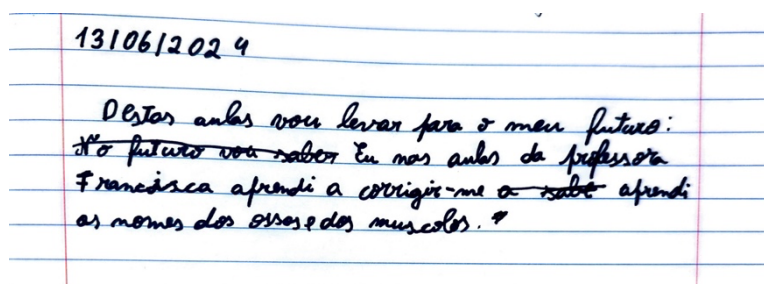 13/06/2024
Destas aulas vou levar para o meu futuro:
No futuro vou saber Eu nas aulas da professora
Francisca aprendi a corrigir-me a sabe aprendi
os nomes dos ossos e dos muscolos.